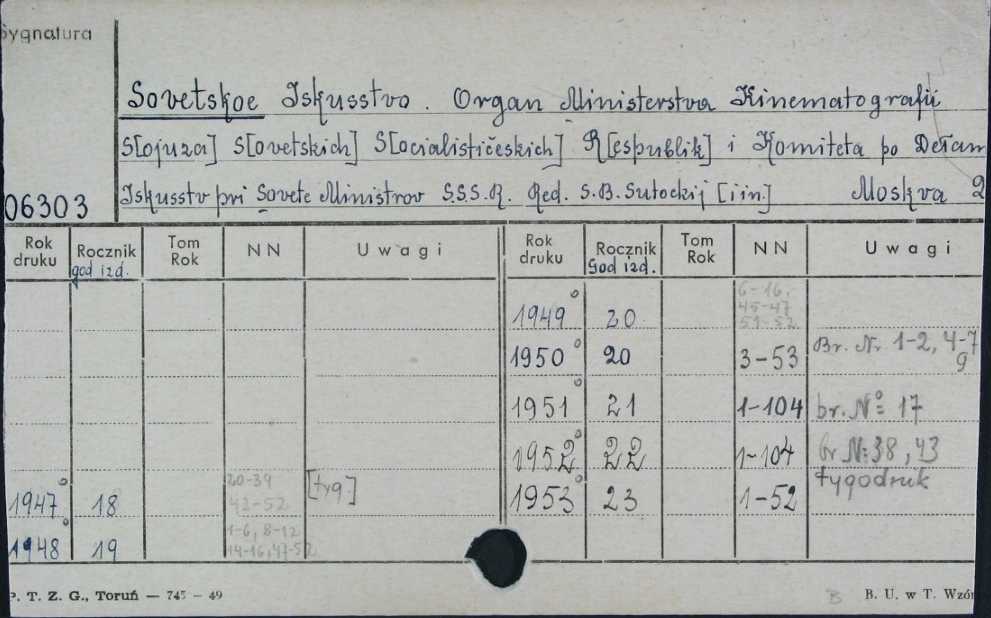 Sygnatura
Sovetskoe Iskusstvo. Organ Ministerstva Kinematografii
S[ojuza] S[ovetskich] S[ocialističeskich] R[espublik] i Komiteta po Dełam
Iskusstv pri Sovete Ministrov S.S.S.R. Red. S.B. Sutockij [i in.] Moskva 2
06303
Rok druku Rocznik god izd. Tom Rok NN Uwagi Rok druku Rocznik God izd. Tom Rok NN Uwagi
1949 20 6-16, 45-47
1950 20 3-53 Br. Nr. 1-2, 4-7
9
1951 21 1-104 br. No 17
1952 22 1-104 br N: 38, 43
1947 18 20-39 42-52 [tyg] 1953 23 1-52 tygodnik
1948 19 1-6, 8-12 14-16, 47-52
P. T. Z. G., Toruń — 745 — 49
B
B. U. w T. Wzór